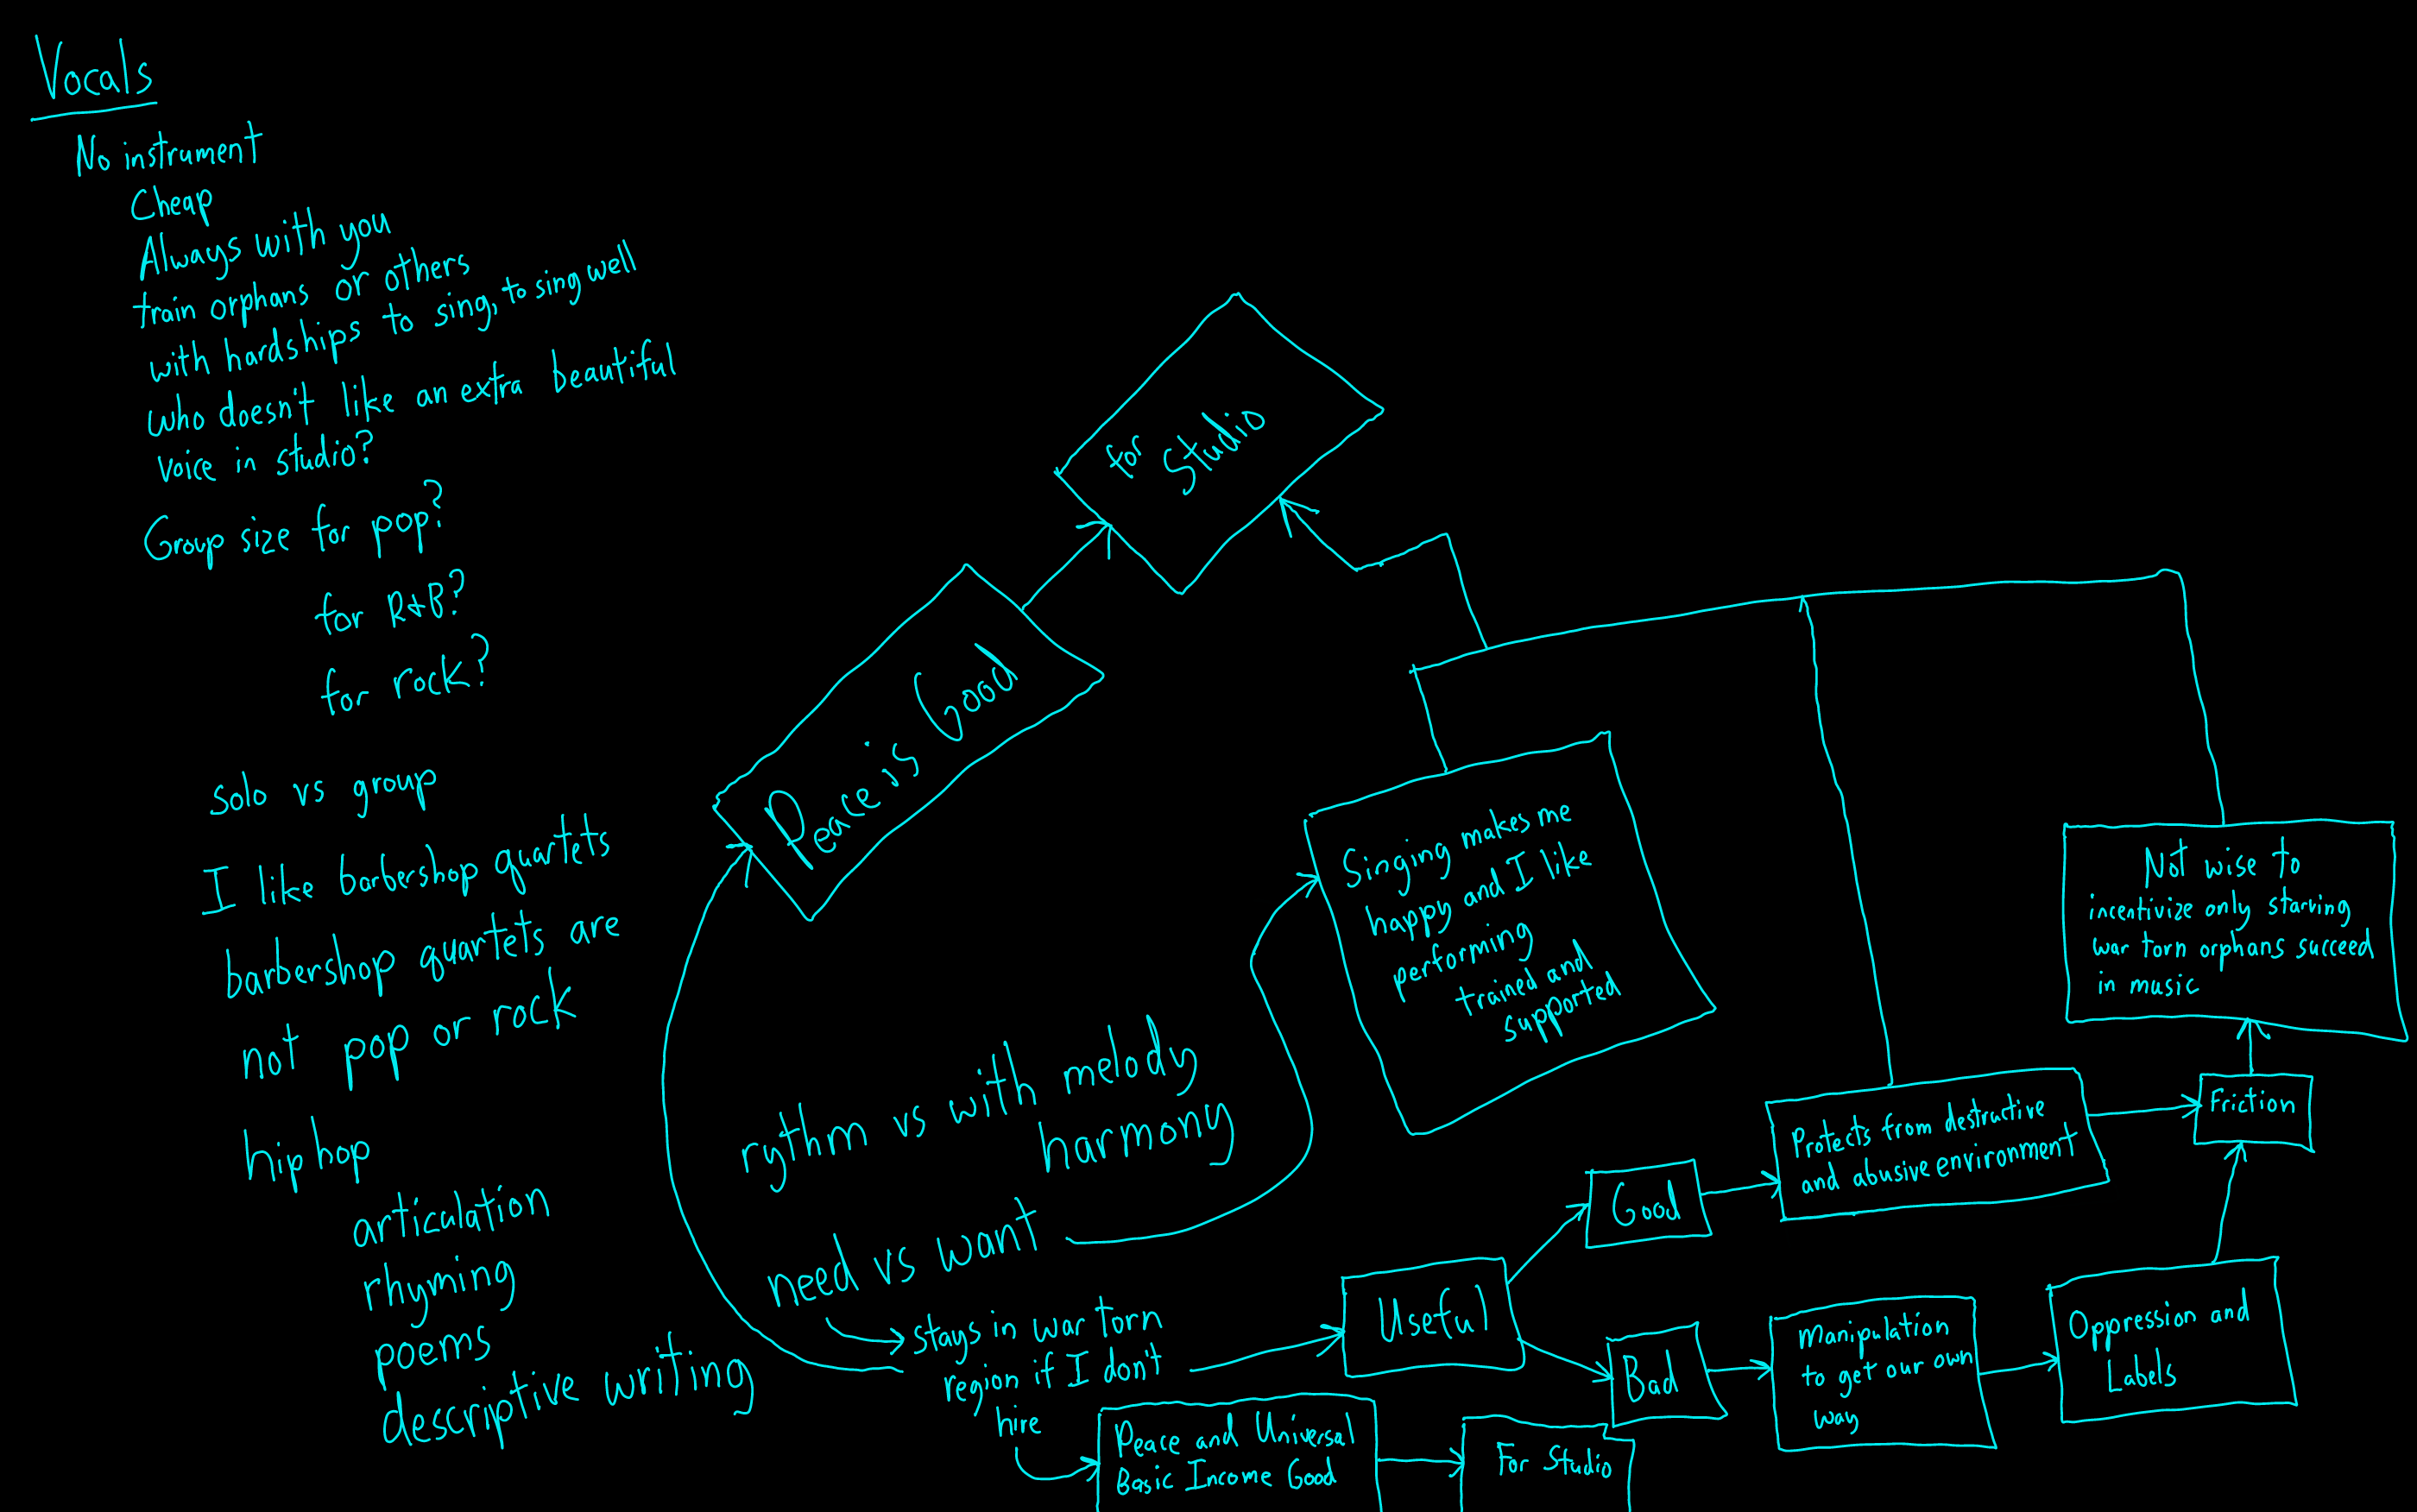 Vocals
No instrument
Cheap
Always with you
train orphans or others
with hardships to sing, to sing well
who doesn't like an extra beautiful
voice in studio?
Group size for pop?
for R+B?
for rock?
solo vs group
I like barbershop quartets
barbershop quartets are
not pop or rock
hip hop
articulation
rhyming
poems
descriptive writing
for
Studio
Peace is Good
rythm vs with melody
harmony
need vs want
stays in war torn
region if I don't
hire
Peace and Universal
Basic Income Good
For Studio
Singing makes me
happy and I like
performing
trained and
supported
Useful
Good
Bad
Protects from destructive
and abusive environment
Manipulation
to get our own
way
Oppression and
Labels
Friction
Not wise to
incentivize only starving
war torn orphans succeed
in music